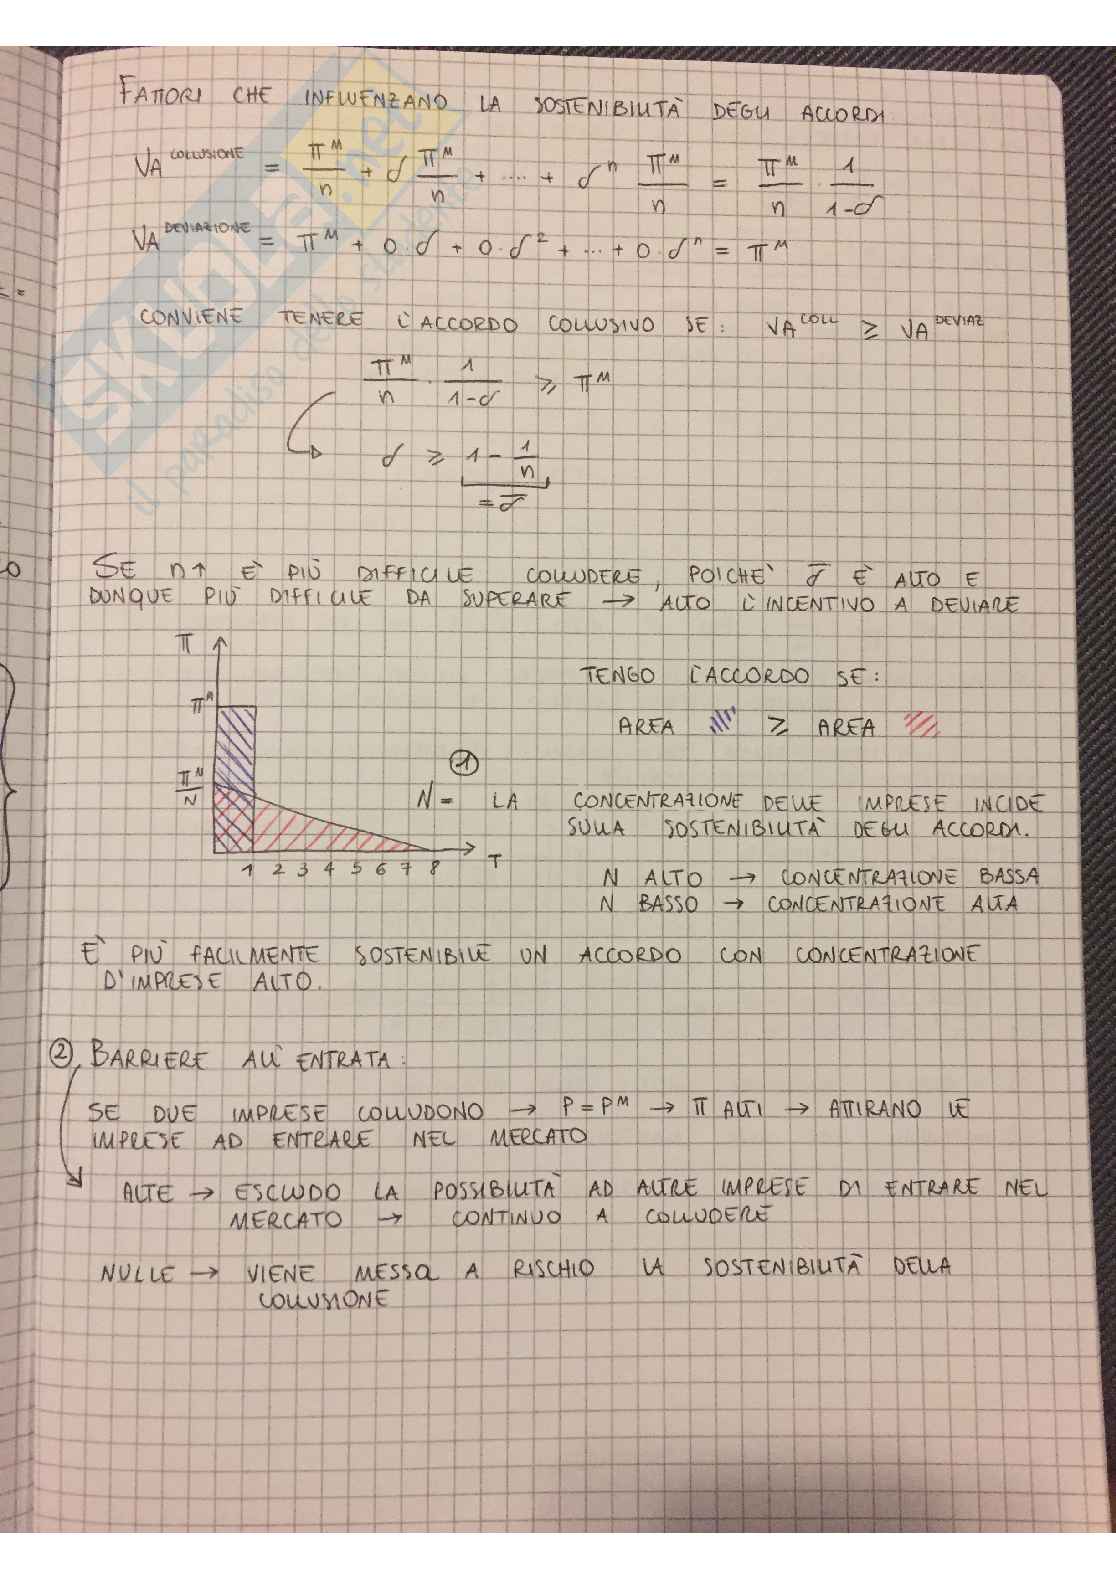 FATTORI CHE INFLUENZANO LA SOSTENIBILITÀ DEGLI ACCORDI
VA^COLLUSIONE = π^M/n + δ π^M/n + .... + δ^n π^M/n = π^M/n · 1/(1-δ)
VA^DEVIAZIONE = π^M + 0·δ + 0·δ² + ... + 0·δ^n = π^M
CONVIENE TENERE L'ACCORDO COLLUSIVO SE: VA^COLL ≥ VA^DEVIAZ
π^M/n · 1/(1-δ) ≥ π^M
δ ≥ 1 - 1/n
= δ̅
SE n↑ E' PIÙ DIFFICILE COLLUDERE, POICHE' δ̅ E' ALTO E
DUNQUE PIÙ DIFFICILE DA SUPERARE → ALTO L'INCENTIVO A DEVIARE
π
TENGO L'ACCORDO SE:
π^M
AREA ≥ AREA
①
π^M/N
N = LA CONCENTRAZIONE DELLE IMPRESE INCIDE
SULLA SOSTENIBILITÀ DEGLI ACCORDI.
1 2 3 4 5 6 7 8 T
N ALTO → CONCENTRAZIONE BASSA
N BASSO → CONCENTRAZIONE ALTA
E' PIÙ FACILMENTE SOSTENIBILE UN ACCORDO CON CONCENTRAZIONE
D'IMPRESE ALTO.
② BARRIERE ALL'ENTRATA:
SE DUE IMPRESE COLLUDONO → P = P^M → π ALTI → ATTIRANO LE
IMPRESE AD ENTRARE NEL MERCATO
ALTE → ESCLUDO LA POSSIBILITÀ AD ALTRE IMPRESE DI ENTRARE NEL
MERCATO → CONTINUO A COLLUDERE
NULLE → VIENE MESSA A RISCHIO LA SOSTENIBILITÀ DELLA
COLLUSIONE